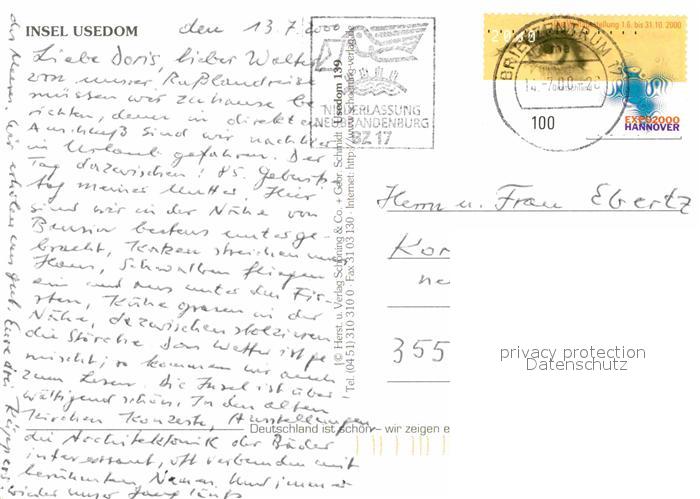 INSEL USEDOM
den 13.7.2000
Liebe Doris, lieber Walter
von unser Rußlandreise
müssen wir zuhause be
richten, denn im direkten
Anschluß sind wir nach hier
in Urlaub gefahren. Der
Tag dazwischen: 85. Geburts-
tag meiner Mutter. Hier
sind wir in der Nähe von
Bansin bestens unterge-
bracht, Katzen streichen ums
Haus, Schwalben fliegen
ein und aus unter den Fir-
sten, Kühe grasen in der
Nähe, dazwischen stolzieren
die Störche. Das Wetter ist ge
mischt, so kommen wir auch
zum Lesen. Die Insel ist über-
wältigend schön. In den alten
Kirchen Konzerte, Ausstellungen
die Architektonik der Bäder
interessant, oft verbunden mit
berühmten Namen. Und immer
wieder unser
das Meer. Wir erholen uns gut. Eure drei
© Herst. u. Verlag Schöning & Co. + Gebr. Schmidt
Usedom 139
Tel. (04 51) 310 310 0 · Fax 31 03 130 · Internet:
Deutschland ist schön – wir zeigen e
NIEDERLASSUNG
NEUBRANDENBURG
BZ 17
BRIEFZENTRUM 17
2000
1.6. bis 31.10. 2000
100
EXPO2000
HANNOVER
Herrn u. Frau Ebertz
Kor
ne
355
privacy protection
Datenschutz